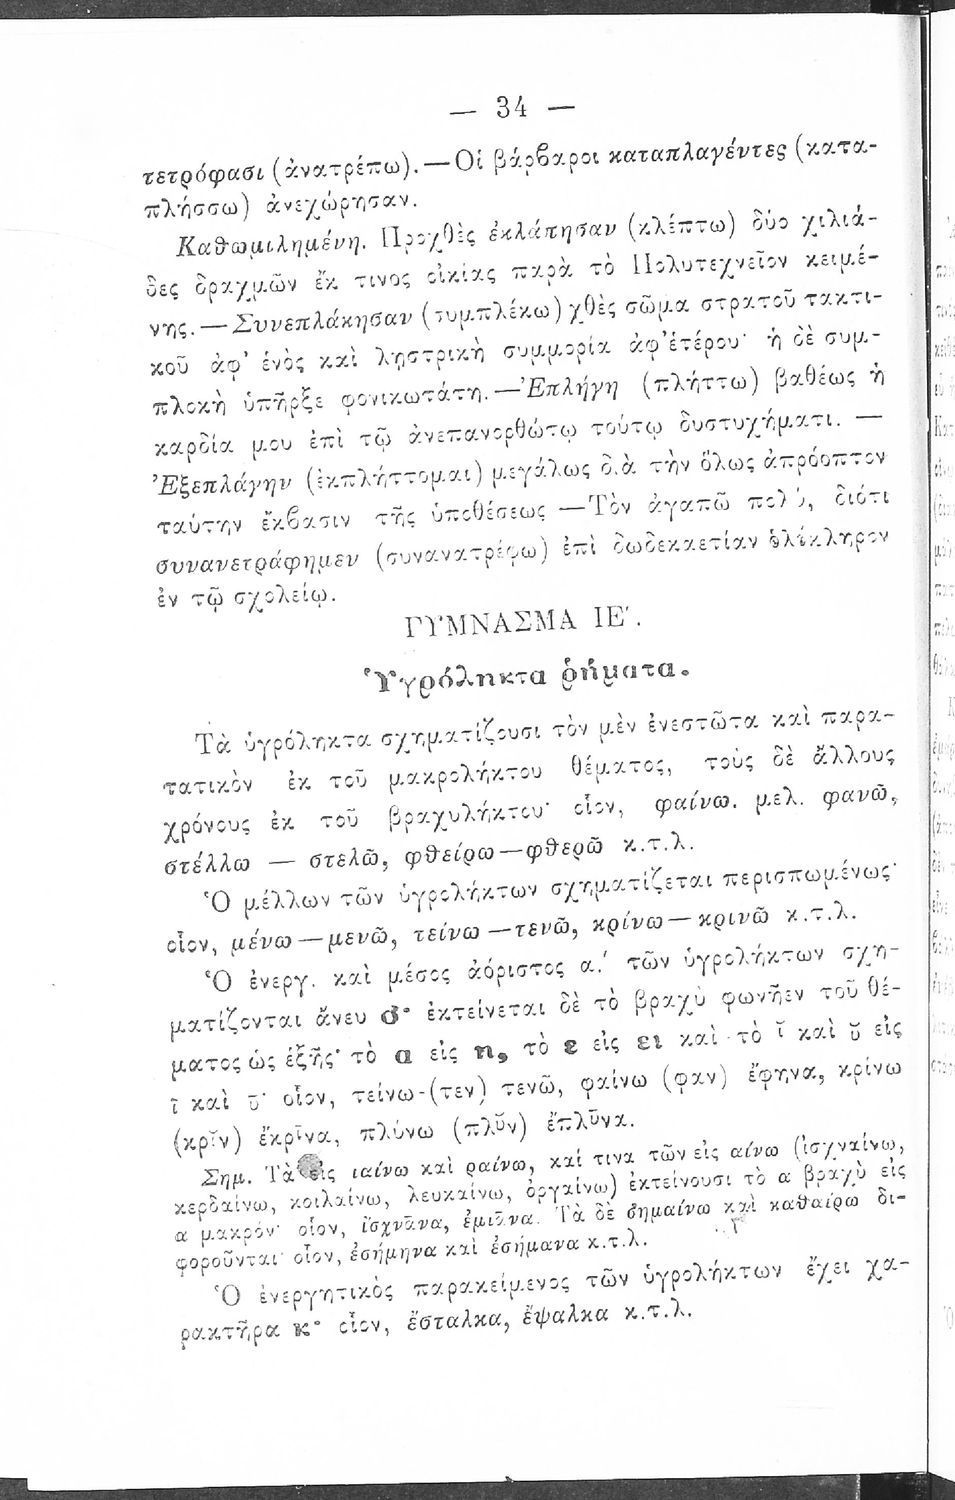 — 34 —
τετρόφασι (ἀνατρέπω).—Οἱ βάρβαροι καταπλαγέντες (κατα-
πλήσσω) ἀνεχώρησαν.
Καθωμιλημένη. Προχθὲς ἐκλάπησαν (κλέπτω) δύο χιλιά-
δες δραχμῶν ἔκ τινος οἰκίας παρὰ τὸ Πολυτεχνεῖον κειμέ-
νης.—Συνεπλάκησαν (συμπλέκω) χθὲς σῶμα στρατοῦ τακτι-
κοῦ ἀφ' ἑνὸς καὶ λῃστρικὴ συμμορία ἀφ' ἑτέρου· ἡ δὲ συμ-
πλοκὴ ὑπῆρξε φονικωτάτη.—Ἐπλήγη (πλήττω) βαθέως ἡ
καρδία μου ἐπὶ τῷ ἀνεπανορθώτῳ τούτῳ δυστυχήματι. —
Ἐξεπλάγην (ἐκπλήττομαι) μεγάλως διὰ τὴν ὅλως ἀπρόοπτον
ταύτην ἔκβασιν τῆς ὑποθέσεως —Τὸν ἀγαπῶ πολύ, διότι
συνανετράφημεν (συνανατρέφω) ἐπὶ δωδεκαετίαν ὁλόκληρον
ἐν τῷ σχολείῳ.
ΓΥΜΝΑΣΜΑ ΙΕ΄.
Ὑγρόληκτα ῥήματα.
Τὰ ὑγρόληκτα σχηματίζουσι τὸν μὲν ἐνεστῶτα καὶ παρα-
τατικὸν ἐκ τοῦ μακρολήκτου θέματος, τοὺς δὲ ἄλλους
χρόνους ἐκ τοῦ βραχυλήκτου· οἷον, φαίνω. μελ. φανῶ,
στέλλω — στελῶ, φθείρω—φθερῶ κ.τ.λ.
Ὁ μέλλων τῶν ὑγρολήκτων σχηματίζεται περισπωμένως·
οἷον, μένω—μενῶ, τείνω—τενῶ, κρίνω—κρινῶ κ.τ.λ.
Ὁ ἐνεργ. καὶ μέσος ἀόριστος α.΄ τῶν ὑγρολήκτων σχη-
ματίζονται ἄνευ σ· ἐκτείνεται δὲ τὸ βραχὺ φωνῆεν τοῦ θέ-
ματος ὡς ἑξῆς· τὸ α εἰς η, τὸ ε εἰς ει καὶ τὸ ῐ καὶ ῠ εἰς
ῑ καὶ ῡ· οἷον, τείνω-(τεν) τενῶ, φαίνω (φαν) ἔφηνα, κρίνω
(κρῐν) ἔκρῑνα, πλύνω (πλῠν) ἔπλῡνα.
Σημ. Τὰ εἰς ιαίνω καὶ ραίνω, καί τινα τῶν εἰς αίνω (ἰσχναίνω,
κερδαίνω, κοιλαίνω, λευκαίνω, ὀργαίνω) ἐκτείνουσι τὸ α βραχὺ εἰς
α μακρόν· οἷον, ἴσχνᾱνα, ἐμίᾱνα. Τὰ δὲ σημαίνω καὶ καθαίρω δι-
φοροῦνται· οἷον, ἐσήμηνα καὶ ἐσήμανα κ.τ.λ.
Ὁ ἐνεργητικὸς παρακείμενος τῶν ὑγρολήκτων ἔχει χα-
ρακτῆρα κ· οἷον, ἔσταλκα, ἔψαλκα κ.τ.λ.